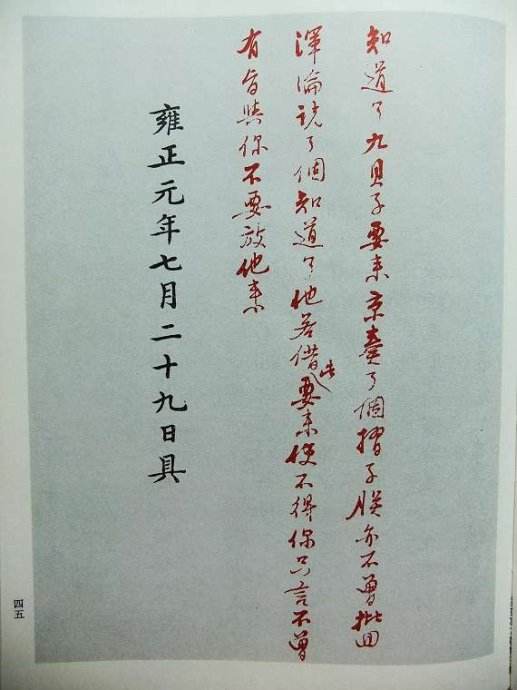 知道了九貝子要来京奏了個摺子朕亦不曾批回
渾淪說了個知道了他若借此要来使不得你只言不曾
有旨與你不要放他来
雍正元年七月二十九日具
四五